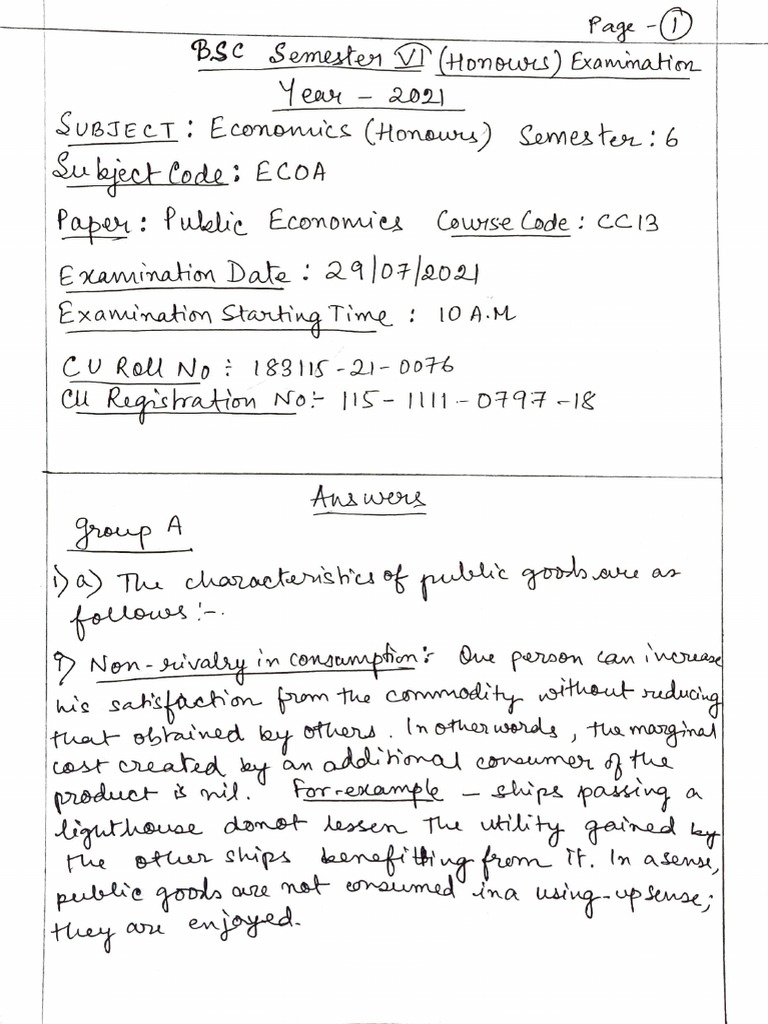 Page - 1
BSC Semester VI (Honours) Examination
Year - 2021
SUBJECT : Economics (Honours) Semester : 6
Subject Code : ECOA
Paper : Public Economics Course Code : CC13
Examination Date : 29/07/2021
Examination Starting Time : 10 A.M
CU Roll No :- 183115-21-0076
CU Registration No:- 115-1111-0797-18
Answers
Group A
1) a) The characteristics of public goods are as
follows :-.
i) Non-rivalry in consumption:- One person can increase
his satisfaction from the commodity without reducing
that obtained by others. In other words, the marginal
cost created by an additional consumer of the
product is nil. For-example - ships passing a
lighthouse donot lessen the utility gained by
the other ships benefitting from it. In a sense,
public goods are not consumed in a using-up sense;
they are enjoyed.